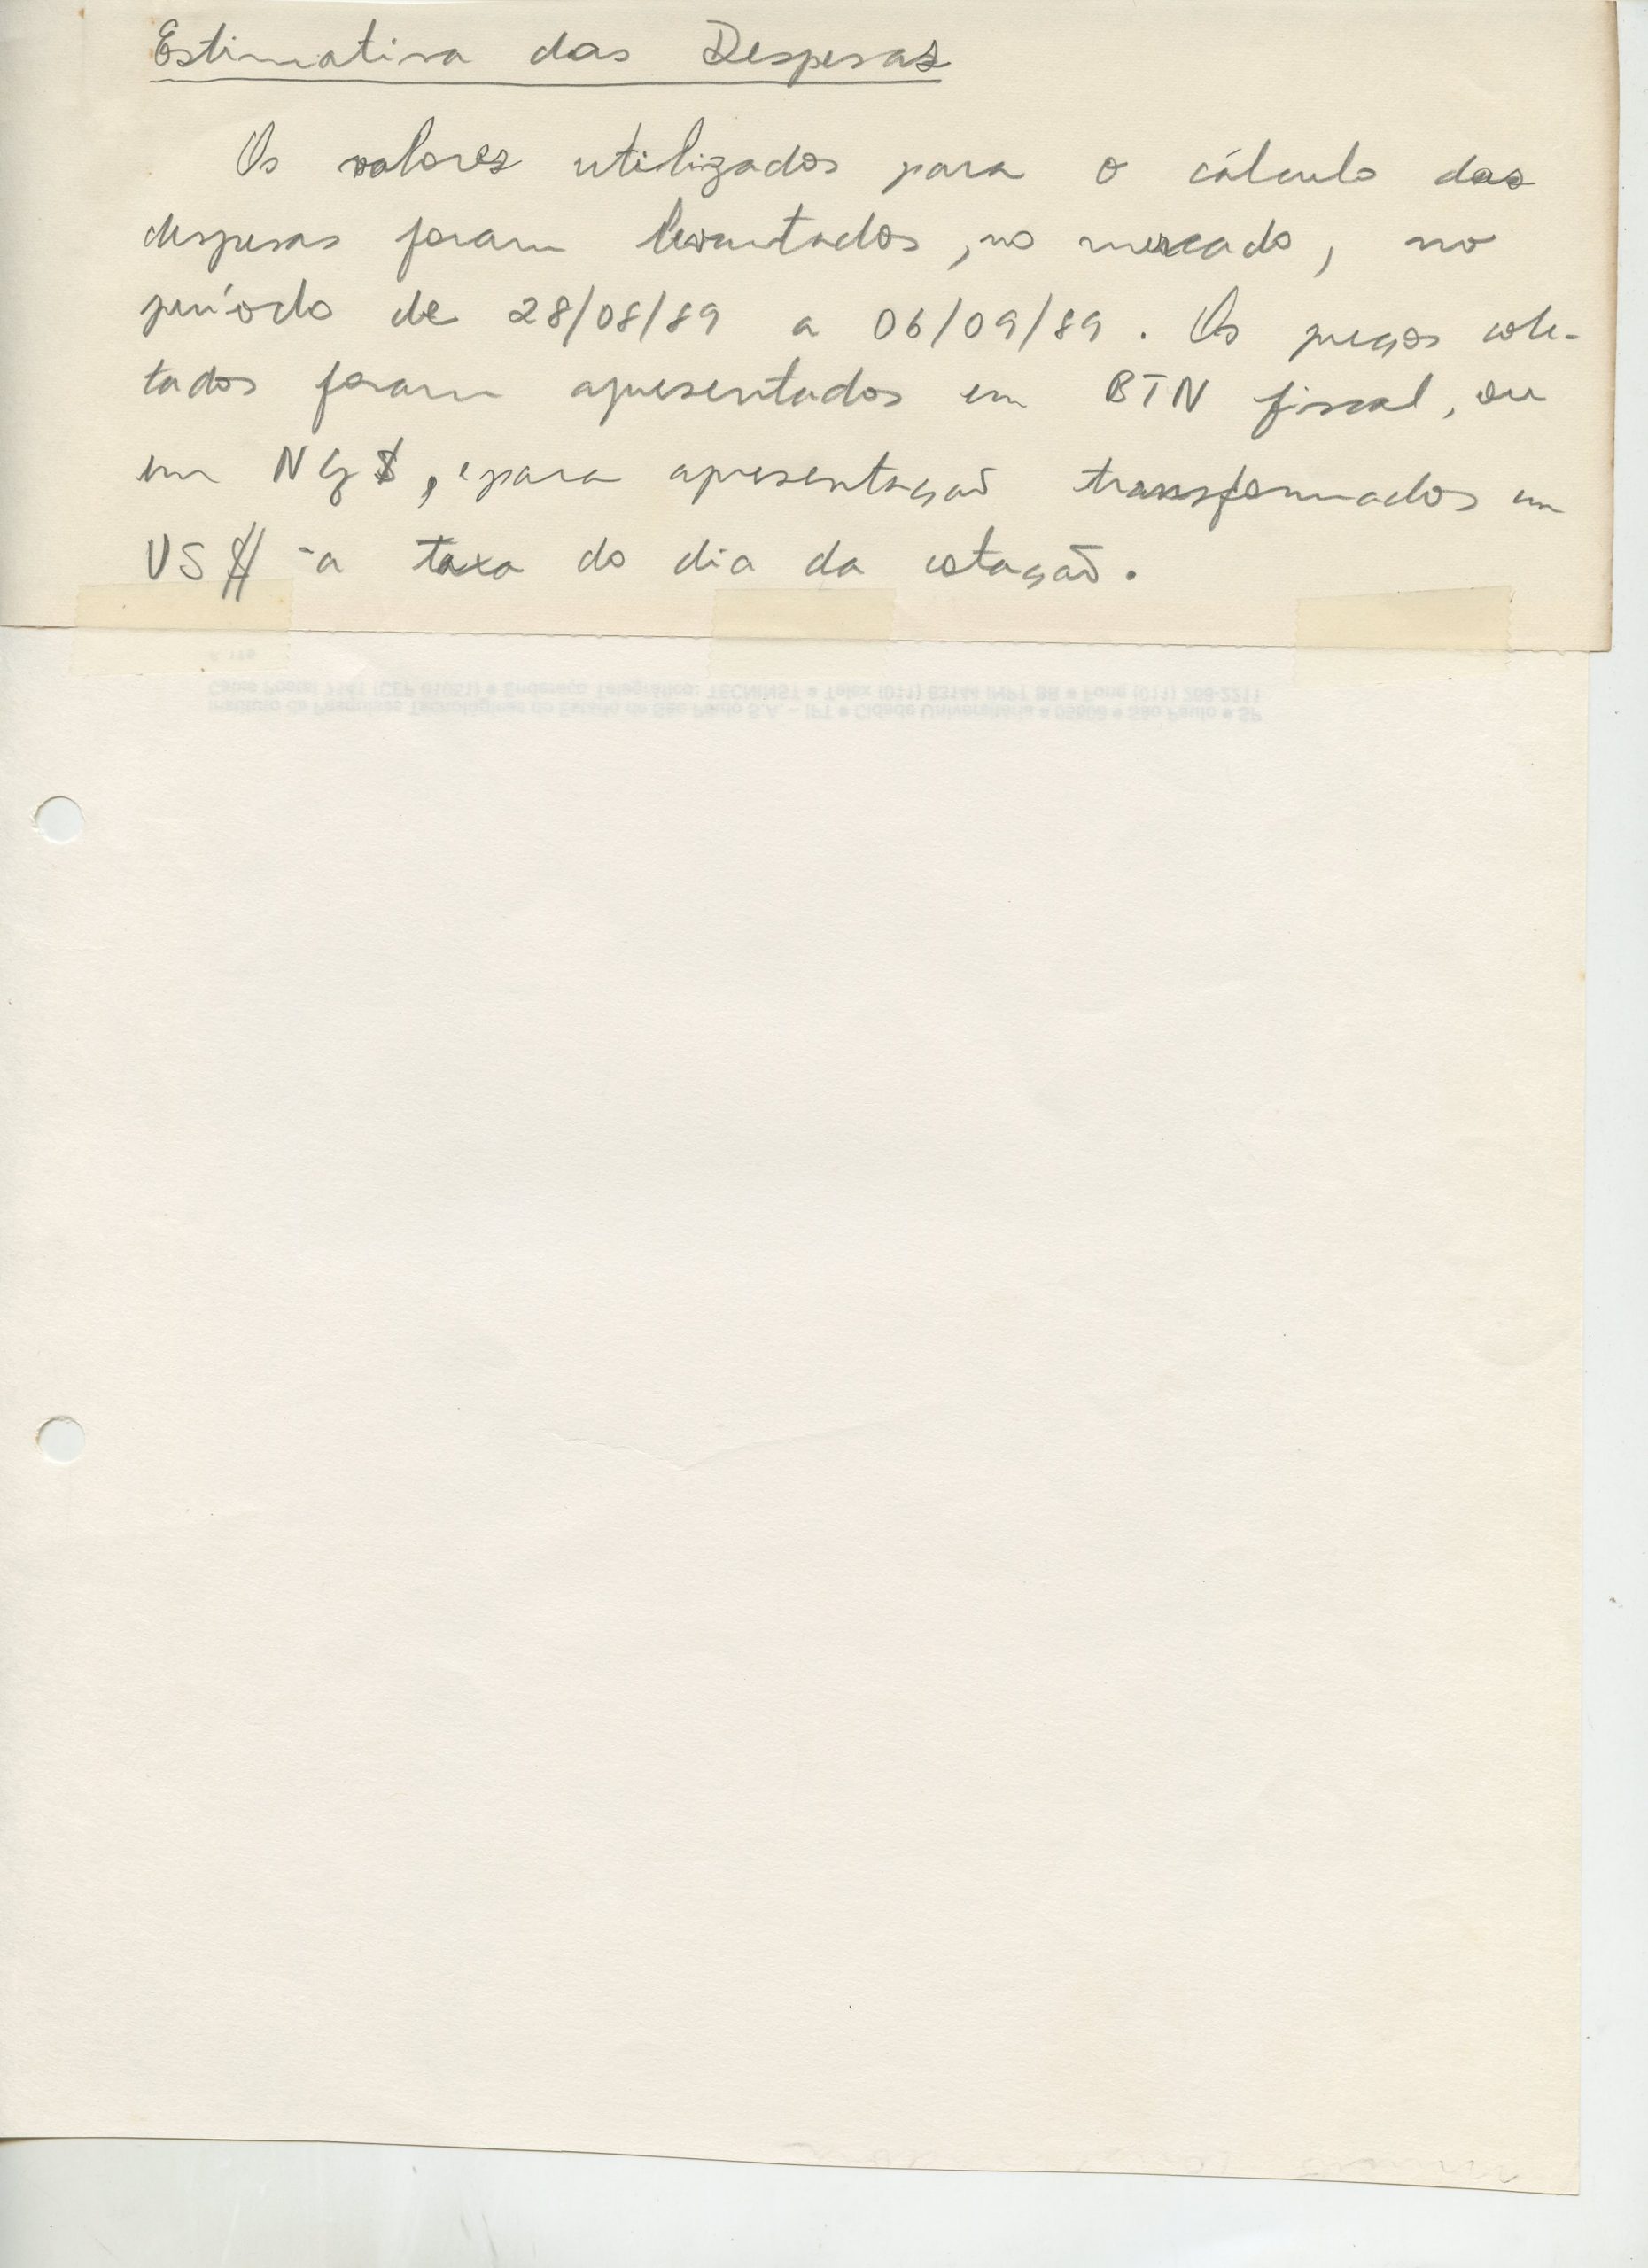 Estimativa das Despesas
Os valores utilizados para o cálculo das
despesas foram levantados, no mercado, no
período de 28/08/89 a 06/09/89. Os preços cole-
tados foram apresentados em BTN fiscal, ou
em NCz$, e para apresentação transformados em
US$ à taxa do dia da cotação.
Caixa Postal 7141 (CEP 01051) • Endereço Telegráfico: TECNINST • Telex (011) 83144 INPT BR • Fone (011) 268-2211
Instituto de Pesquisas Tecnológicas do Estado de São Paulo S.A. - IPT • Cidade Universitária • 05508 • São Paulo • SP